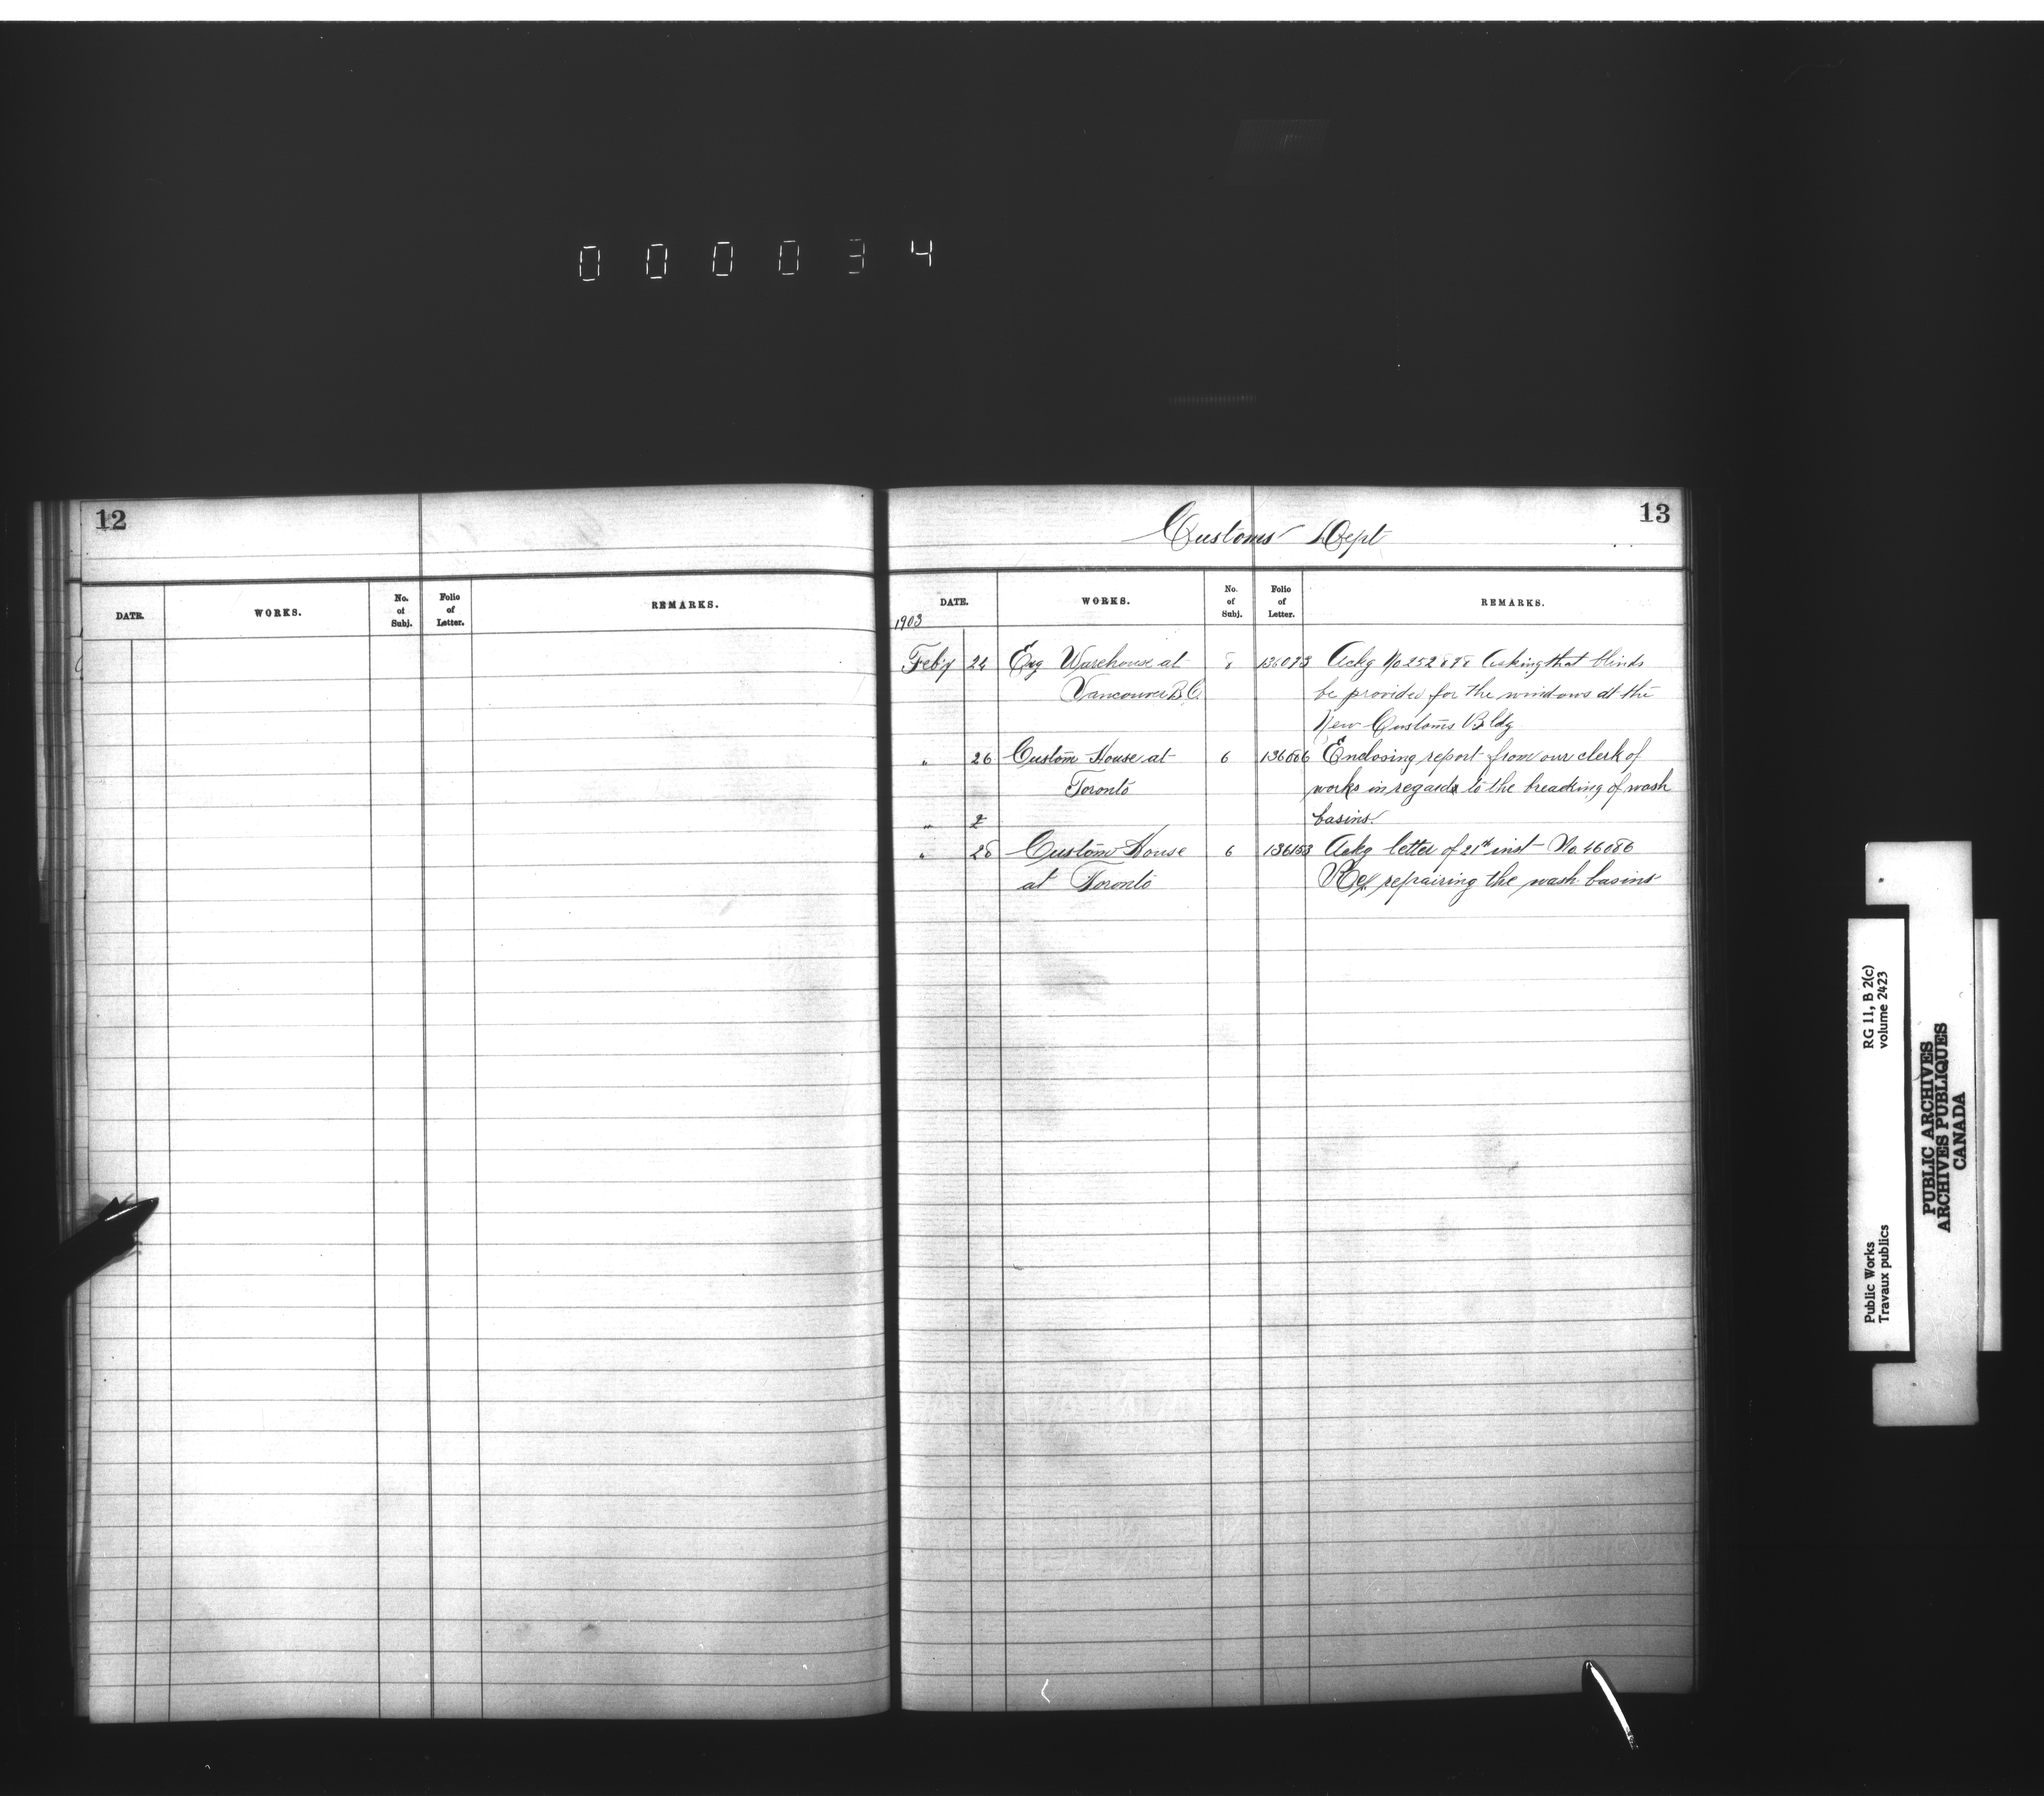 000034
12
DATE. WORKS. No. of Subj. Folio of Letter. REMARKS.
Customs Dept
13
1903
DATE. WORKS. No. of Subj. Folio of Letter. REMARKS.
Feb'y 24 Exg Warehouse at 8 136093 Ackg No 252898 Asking that blinds
Vancouver B.C. be provided for the windows at the
New Customs Bldg
" 26 Custom House at 6 136086 Enclosing report from our clerk of
Toronto works in regards to the breacking of wash
" 2 basins.
" 28 Custom House 6 136153 Ackg letter of 21st inst No. 46086
at Toronto Re repairing the wash basins
Public Works RG 11, B 2(c)
Travaux publics volume 2423
PUBLIC ARCHIVES
ARCHIVES PUBLIQUES
CANADA